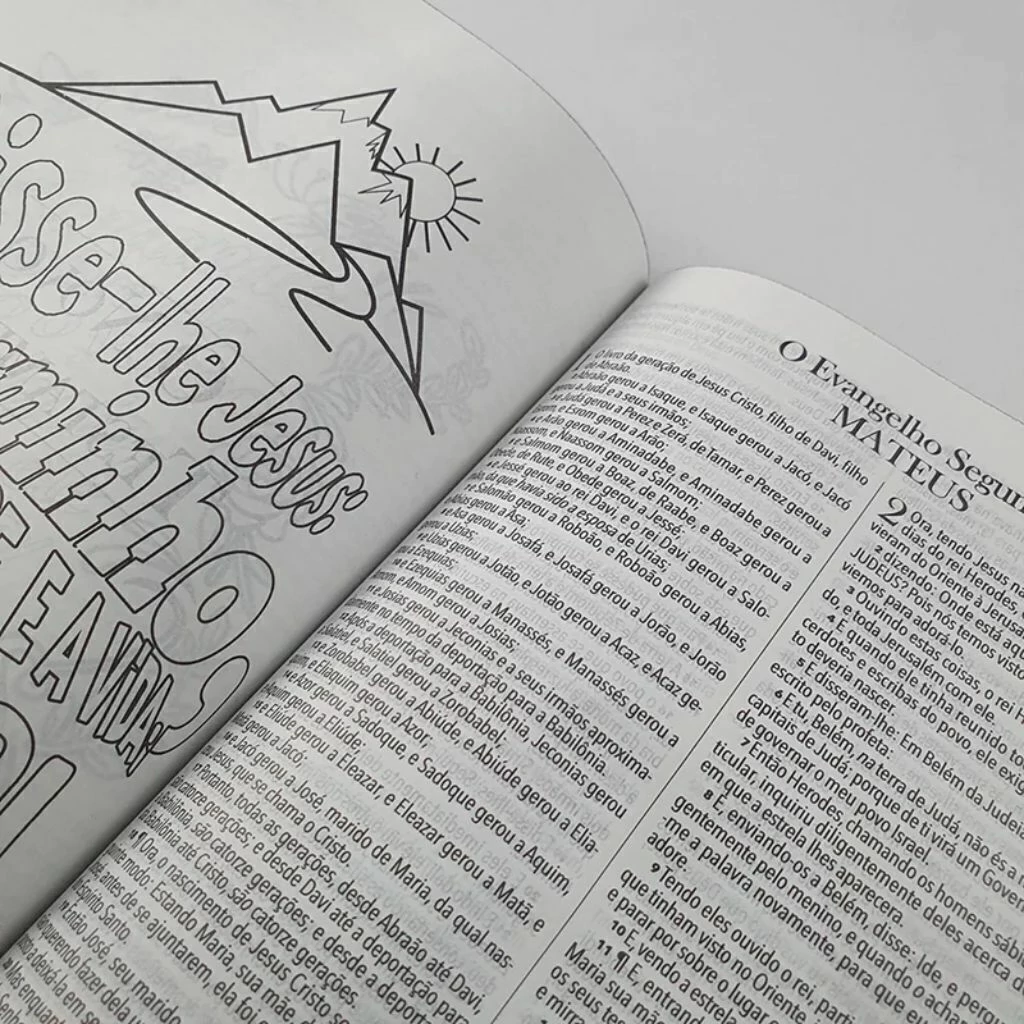 isse-lhe Jesus:
minho
E A VIDA.
O Evangelho Segun
MATEUS
O livro da geração de Jesus Cristo, filho de Davi, filho
de Abraão.
Abraão gerou a Isaque, e Isaque gerou a Jacó, e Jacó
gerou a Judá e a seus irmãos;
Judá gerou a Perez e Zerá, de Tamar, e Perez gerou a
e Esrom gerou a Arão;
Arão gerou a Aminadabe, e Aminadabe gerou a
e Naassom gerou a Salmom;
e Salmom gerou a Boaz, de Raabe, e Boaz gerou a
Obede, de Rute, e Obede gerou a Jessé;
e Jessé gerou ao rei Davi, e o rei Davi gerou a Salo-
da que havia sido a esposa de Urias;
Salomão gerou a Roboão, e Roboão gerou a Abias,
Abias gerou a Asa;
e Asa gerou a Josafá, e Josafá gerou a Jorão, e Jorão
gerou a Uzias;
e Uzias gerou a Jotão, e Jotão gerou a Acaz, e Acaz ge-
a Ezequias;
e Ezequias gerou a Manassés, e Manassés gerou a
e Amom gerou a Josias;
e Josias gerou a Jeconias e a seus irmãos aproxima-
no tempo da deportação para a Babilônia.
Após a deportação para a Babilônia, Jeconias gerou
e Salatiel gerou a Zorobabel;
e Zorobabel gerou a Abiúde, e Abiúde gerou a Elia-
e Eliaquim gerou a Azor;
e Azor gerou a Sadoque, e Sadoque gerou a Aquim,
gerou a Eliúde;
e Eliúde gerou a Eleazar, e Eleazar gerou a Matã, e
gerou a Jacó;
e Jacó gerou a José, marido de Maria, da qual nas-
Jesus, que se chama o Cristo.
Portanto, todas as gerações, desde Abraão até Davi,
catorze gerações, e desde Davi até a deportação para
são catorze gerações, e desde a deportação para
até Cristo, são catorze gerações.
¶ Ora, o nascimento de Jesus Cristo
modo: Estando Maria, sua mãe,
antes de se ajuntarem, ela foi
Espírito Santo.
Então José, seu marido
querendo fazer dela
deixá-la em
Mas enquanto
2 Ora, tendo Jesus
dias do rei Herodes,
vieram do Oriente à Jerusa
2 dizendo: Onde está aqu
JUDEUS? Pois nós temos visto
viemos para adorá-lo.
3 Ouvindo estas coisas, o rei H
do, e toda Jerusalém com ele.
4 E quando ele tinha reunido to
cerdotes e escribas do povo, ele exig
to deveria nascer.
5 E disseram-lhe: Em Belém da Judeia
escrito pelo profeta:
6 E tu, Belém, na terra de Judá, não és a
capitais de Judá; porque de ti virá um Gover
de governar o meu povo Israel.
7 Então Herodes, chamando os homens sábi
ticular, inquiriu diligentemente deles acerca d
em que a estrela lhes aparecera.
8 E, enviando-os a Belém, disse: Ide, e pergu
gentemente pelo menino, e quando o achar
-me a palavra novamente, para que eu
adore.
9 Tendo eles ouvido o rei, parti
que tinham visto no Oriente
e parar por sobre o lugar
10 E, vendo a estrela
11 ¶ E, entrand
Maria sua mãe
os seus te
e mirra